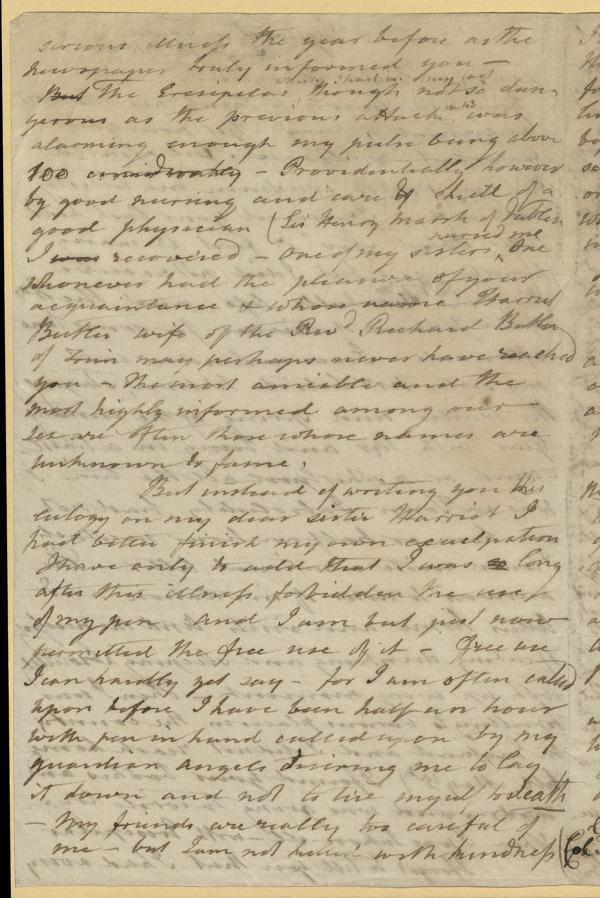 serious illness the year before as the
newspaper truly informed you —
But The Eresipelas, though not so dan-
which I had in
gerous as the previous attack in 43 was
alarming enough my pulse being above
100 considerably — Providentially however
by good nursing and care & skill of a
good physician (Sir Henry Marsh of Dublin
I was recovered — One of my sisters nursed me, One
whonever had the pleasure of your
acquaintance & whose name Harriet
Butler wife of the Revd Richard Butler
of Trim may perhaps never have reached
you — The most amiable and the
most highly informed among our
sex are often those whose names are
unknown to fame.
But instead of writing you this
eulogy on my dear sister Harriet I
had better finish my own exculpation
I have only to add that I was so long
after this illness forbidden the use
of my pen and I am but just now
permitted the free use of it — Free use
I can hardly yet say — for I am often called
upon before I have been half an hour
with pen in hand called upon by my
guardian angels desiring me to lay
it down and not to tire myself to death
— My friends are really too careful of
me — but I am not killed with kindness